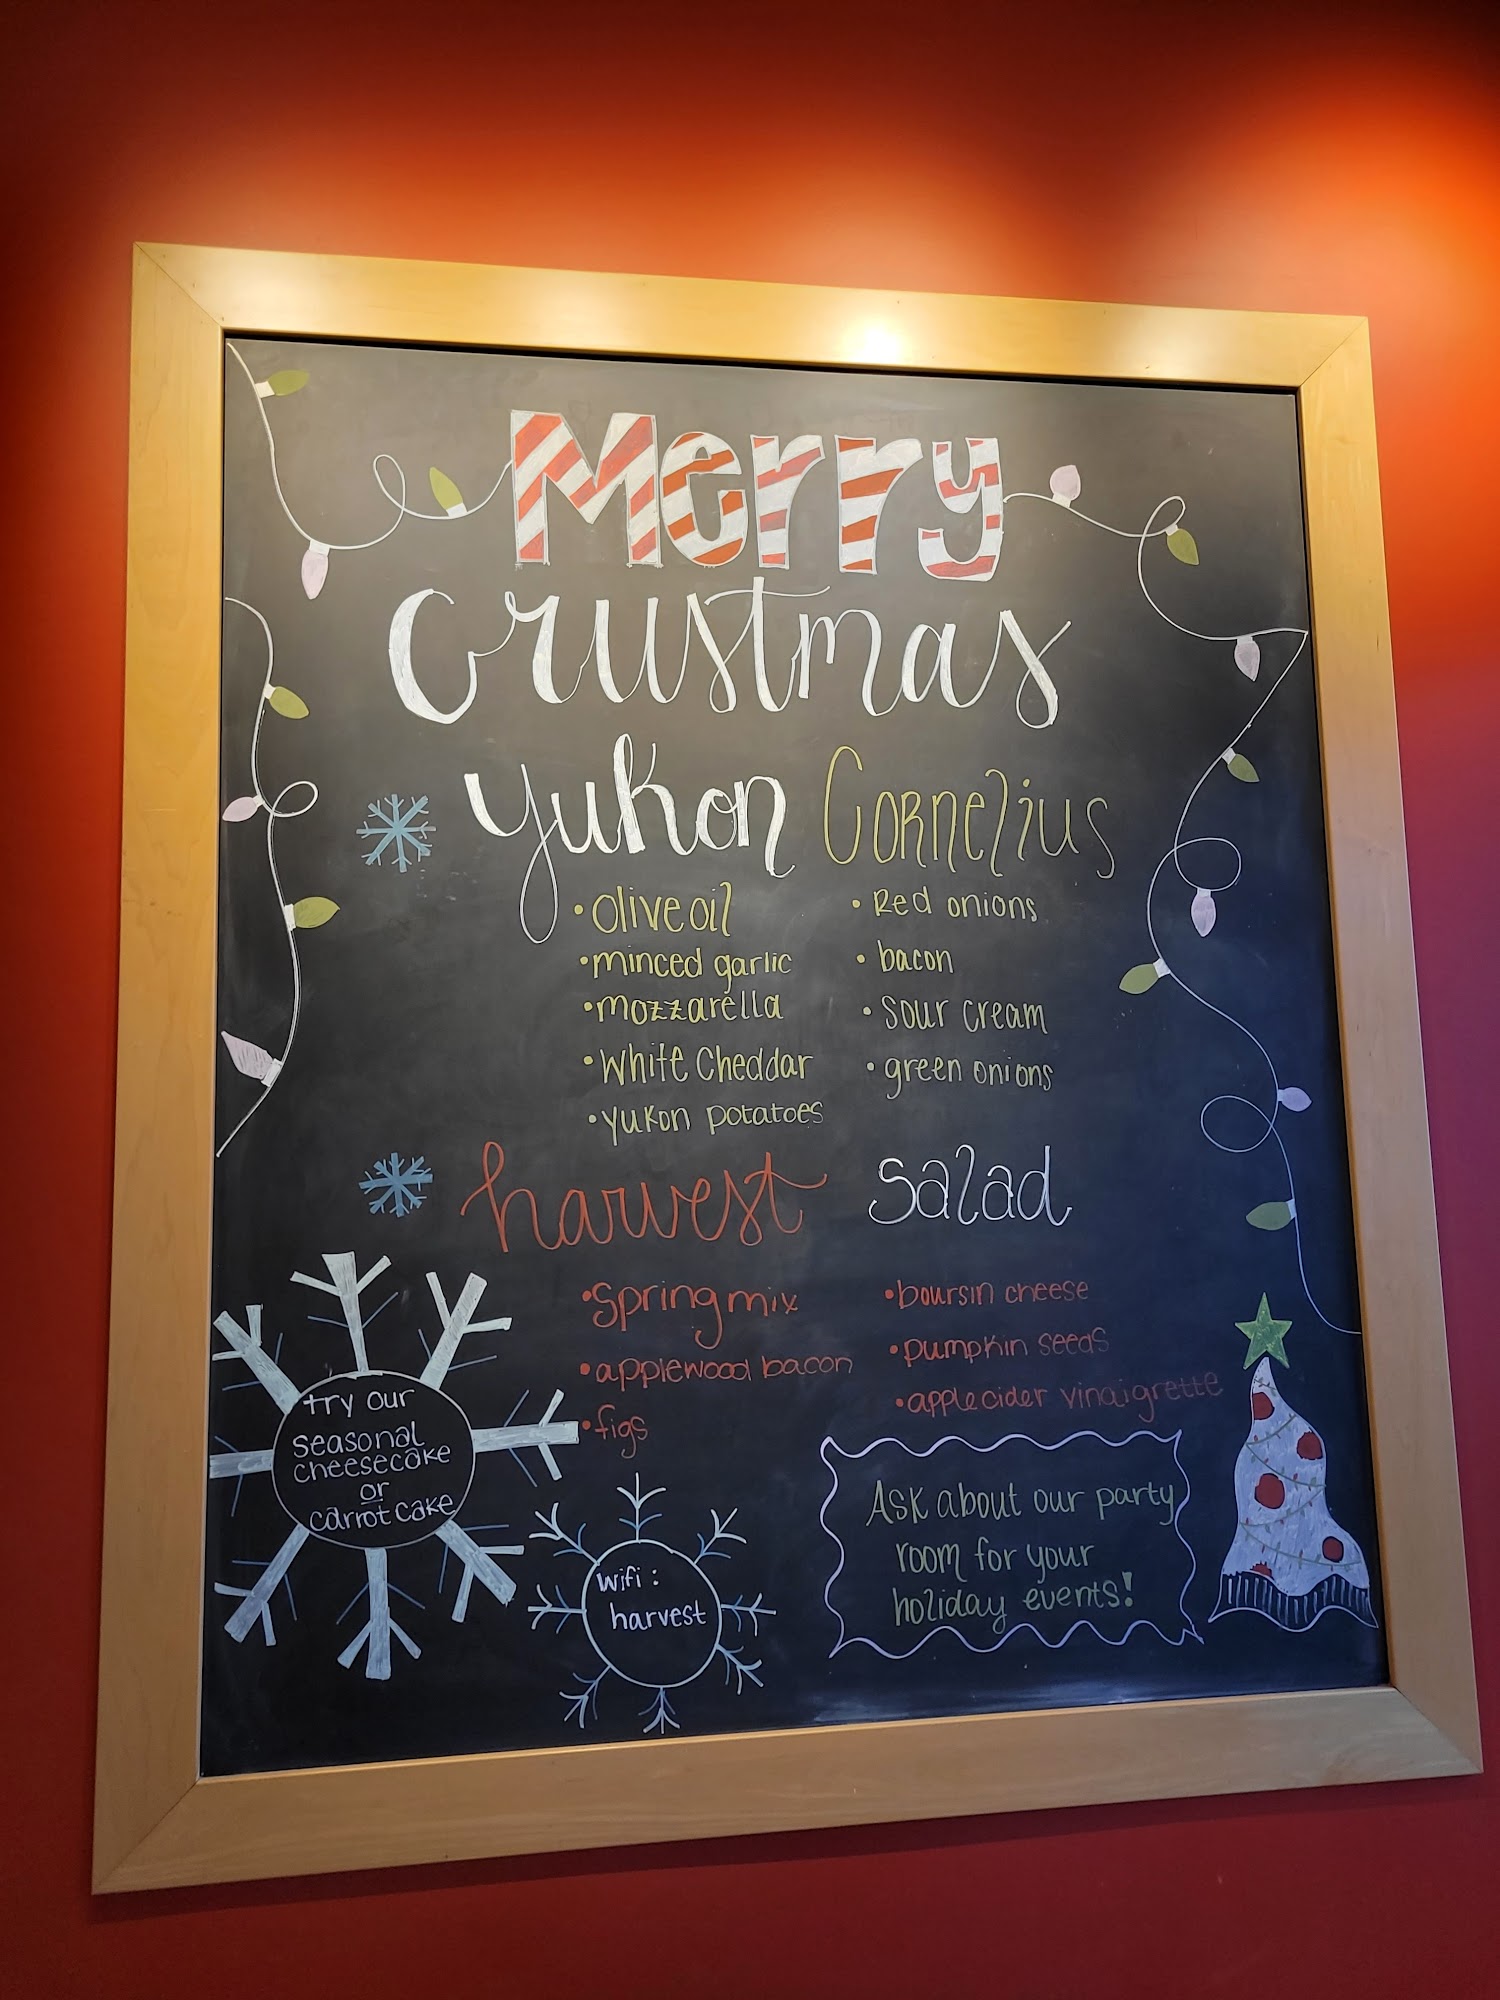 Merry
Crustmas
Yukon Cornelius
• Olive oil
• minced garlic
• mozzarella
• White Cheddar
• Yukon potatoes
• Red onions
• bacon
• Sour cream
• green onions
harvest salad
• Spring mix
• applewood bacon
• figs
• boursin cheese
• pumpkin seeds
• apple cider vinaigrette
try our
seasonal
cheesecake
or
carrot cake
wifi:
harvest
Ask about our party
room for your
holiday events!